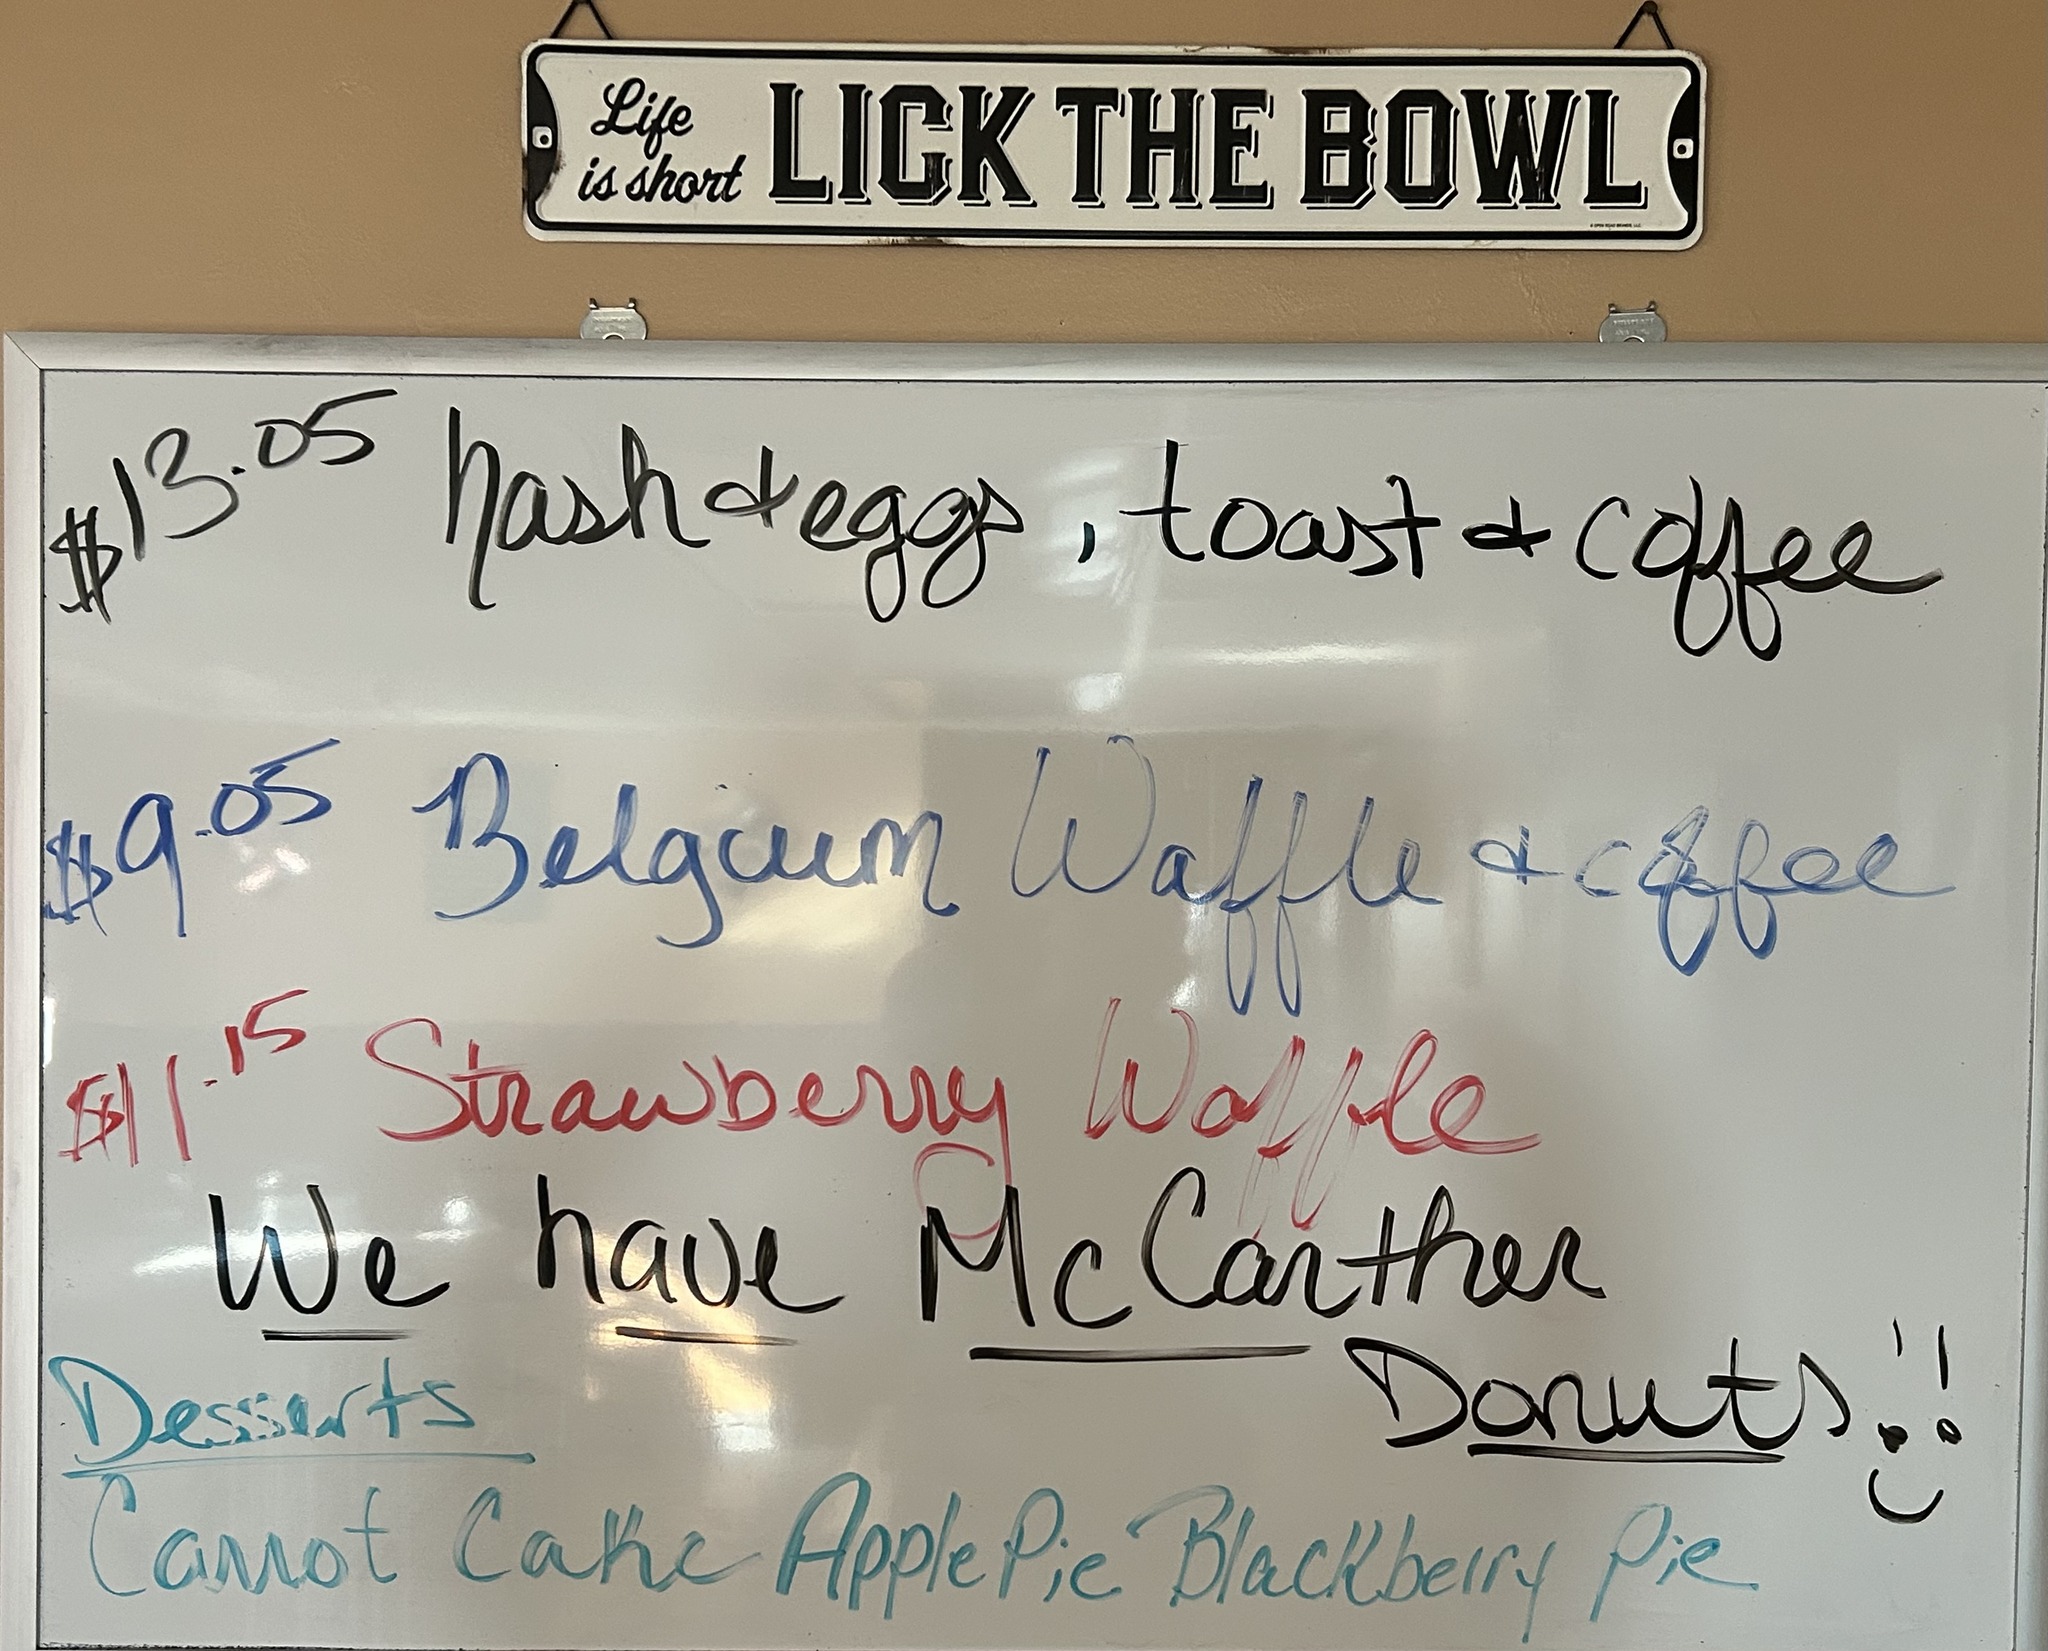 Life
is short LICK THE BOWL
$13.05 hash & eggs, toast & coffee
$9.05 Belgium Waffle & coffee
$11.15 Strawberry Waffle
We have McCarther
Donuts!!
Desserts
Carrot Cake Apple Pie Blackberry Pie